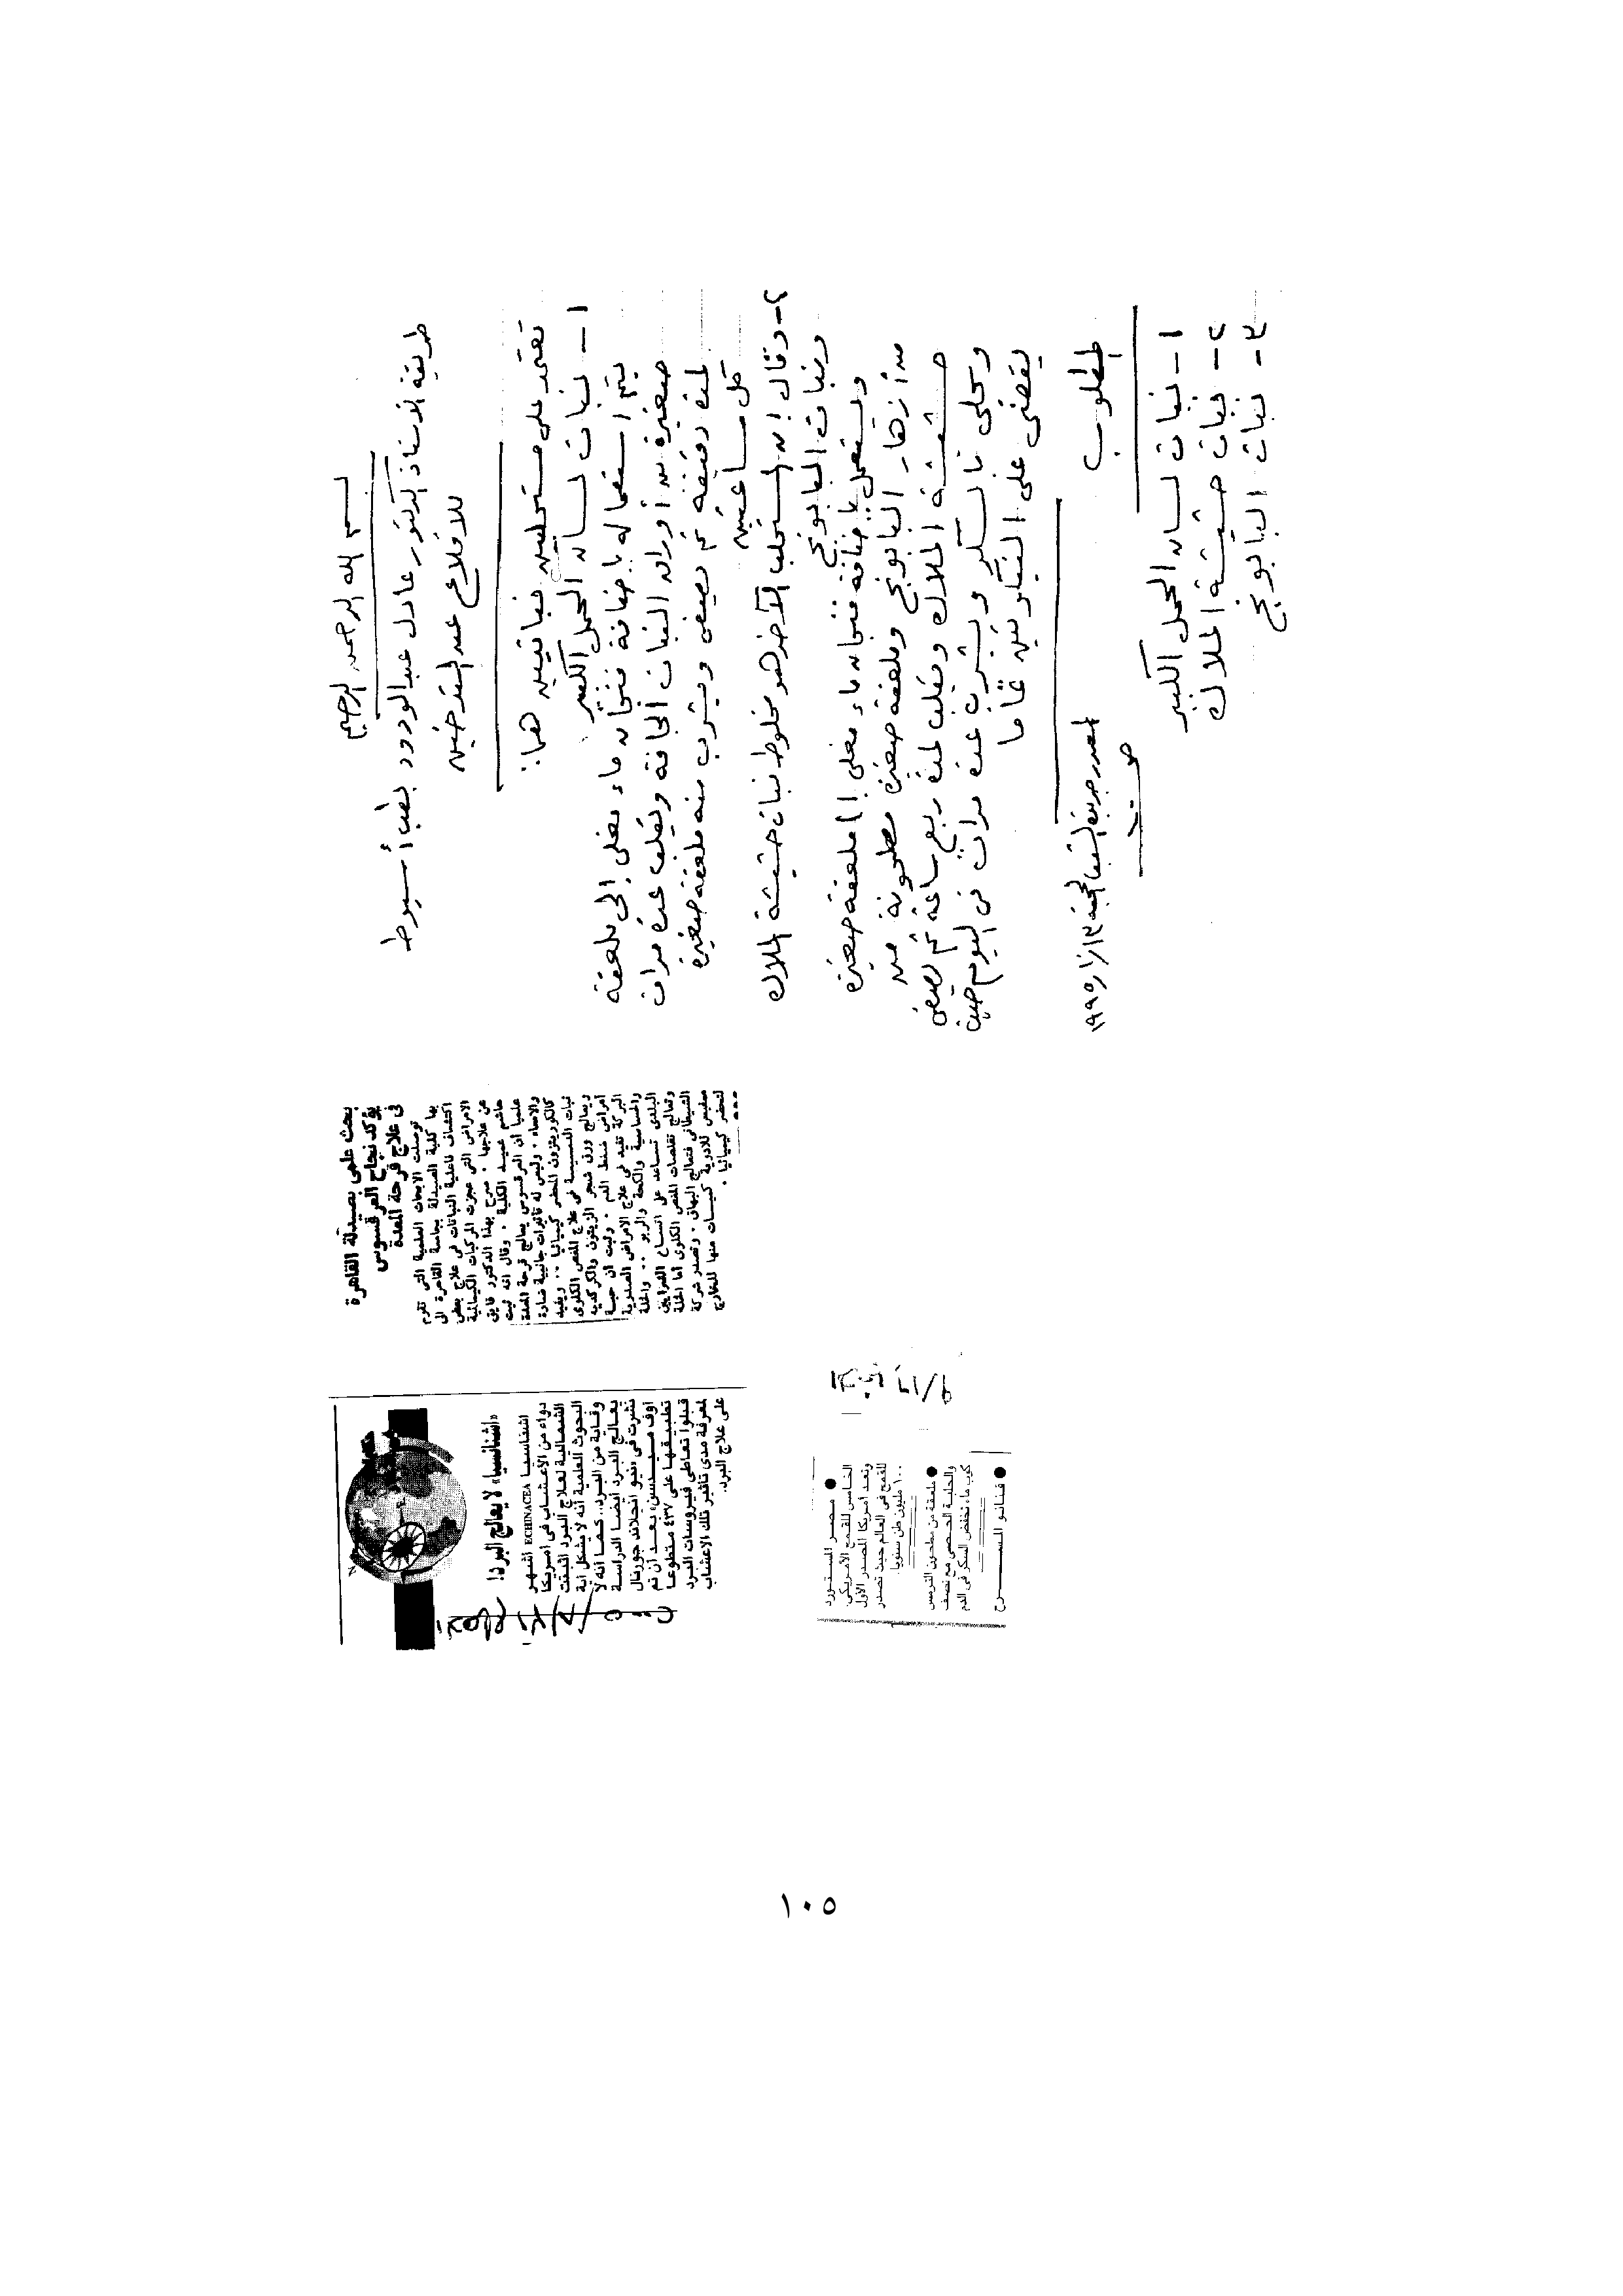 بسم الله الرحمن الرحيم
طريقة الأستاذ الدكتور عادل عبد الودود بطب أسيوط
للاقلاع عن التدخين
تعتمد على مستحلبين نباتيين هما:
١- نبات لسان الحمل الكبير
يتم استعماله باضافة فنجان ماء مغلى إلى ملعقة
صغيرة من أوراق النبات الجافة ويقلب عدة مرات
لمدة دقيقة ثم يصفى ويشرب منه ملعقة صغيرة
كل ساعتين
٢- وقال إن المستحلب الآخر هو مخلوط نبات حشيشة الملاك
ونبات البابونج
ويستعمل باضافة فنجان ماء مغلى ملعقة صغيرة
من أزهار البابونج وملعقة صغيرة مطحونة من
حشيشة الملاك ويقلب لمدة ربع ساعة ثم يصفى
ويحلى بالسكر ويشرب عدة مرات فى اليوم حيث
يقضى على النيكوتين تماما
المصدر جريدة الجمعة ١٣/١/١٩٩٥
المطلوب
١- نبات لسان الحمل الكبير
٢- نبات حشيشة الملاك
٣- نبات البابونج
بحث علمى بصيدلة القاهرة
يؤكد نجاح العرقسوس
فى علاج قرحة المعدة
توصلت الابحاث العلمية التى تقوم
بها كلية الصيدلة بجامعة القاهرة الى
اكتشاف فاعلية النباتات فى علاج بعض
الامراض التى عجزت المركبات الكيمائية
عن علاجها . صرح بهذا الدكتور فايق
هاشم عميد الكلية . وقال انه ثبت
علميا ان العرقسوس يعالج قرحة المعدة
والامعاء . وليس له تأثيرات جانبية ضارة
كالكورتيزون المحضر كيميائيا .. ويفيد
نبات فى علاج المغص الكلوى
ويعالج ورق شجر الزيتون والكركديه
امراض ضغط الدم . وثبت ان حبة
البركة تفيد فى علاج الامراض الصدرية
والحساسية والكحة والربو .. والخلة
البلدى تساعد على اتساع الشرايين
وتعالج تقلصات المغص الكلوى اما الخلة
الشيطانى فتعالج البهاق . وتصدر شركة
ممفيس للادوية كميات منها للخارج
لتحضر كيميائيا .
«اشناسيا» لا يعالج البرد!
اشناسيا ECHINACEA اشهر
دواء من الأعشاب فى أمريكا
الشمالية لعلاج البرد اثبتت
البحوث العلمية أنه لا يشكل أية
وقاية من البرد.. كما أنه لا
يعالج البرد أيضا الدراسة
نشرت فى نيو انجلاند جورنال
أوف ميدسن، بعد أن تم
تطبيقها على ٤٣٧ متطوعا
قبلوا تعاطى فيروسات البرد
لمعرفة مدى تأثير تلك الأعشاب
على علاج البرد.
● مصر المستورد
الخامس للقمح الأمريكى.
وتعد أمريكا المصدر الأول
للقمح فى العالم حيث تصدر
١٠٠ مليون طن سنويا.
● ملعقة من مطحون الترمس
والحلبة الحصى مع نصف
كوب ماء تخفض السكر فى الدم
● فنانو المسرح
١٠٥